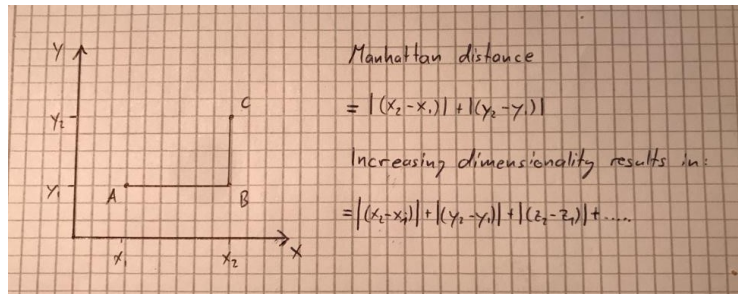 Y
Y₂
Y₁
A
B
C
X₁
X₂
X
Manhattan distance
= |(x₂-x₁)| + |(y₂-y₁)|
Increasing dimensionality results in:
= |(x₂-x₁)| + |(y₂-y₁)| + |(z₂-z₁)| + .....